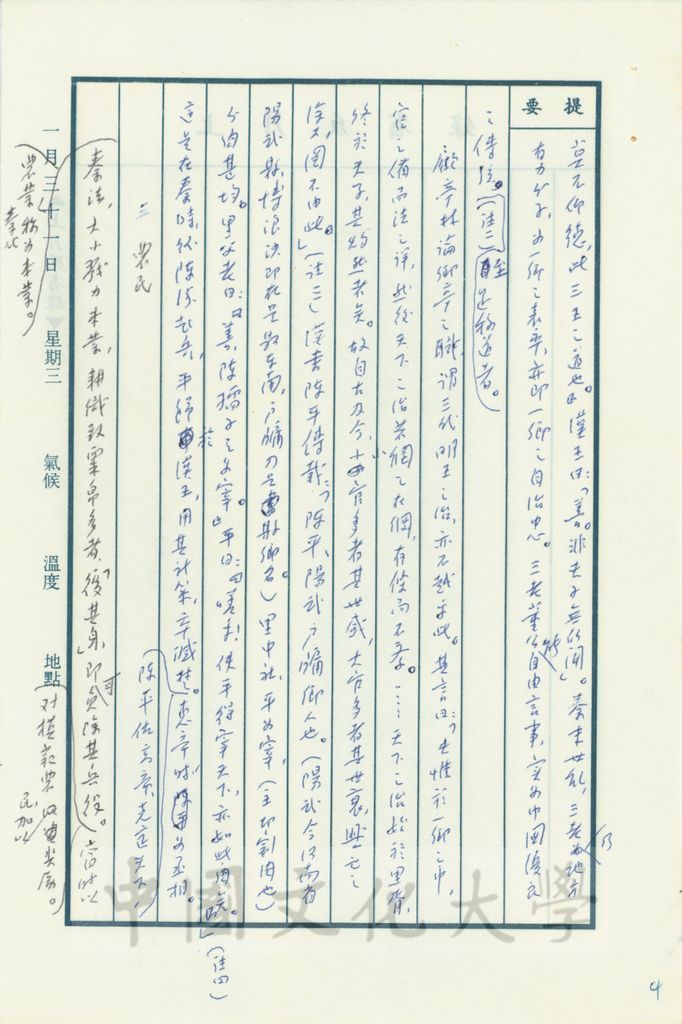 提要
莫不仰德，此三王之道也。漢王曰：「善。非夫子無所聞。」秦末世亂，三老仍為地方
有力分子，為一鄉之表率，亦即一鄉之自治也。三老董公能自由言事，實為中國優良
之傳統。（註二）至足稱道者。
顧亭林論鄉亭之職，謂三代明王之治，亦不越乎此。其言曰：「惟於一鄉之中，
官之備而法之詳，然後天下之治若網之在綱，有條而不紊。……天下之治始於里胥，
終於天子，其灼然者矣。故自古及今，小官多者其世盛，大官多者其世衰，興亡之
途，罔不由此。」（註三）漢書陳平傳載：「陳平，陽武戶牖鄉人也。（陽武今河南省
陽武縣，博浪沙即在是縣東南，戶牖乃是鄉名）里中社，平為宰，（主切割肉也）
分肉甚均。里父老曰：『善，陳孺子之為宰。』平曰：『嗟乎！使平得宰天下，亦如此肉矣。』」（註四）
這是在秦時，後陳涉起兵，平歸於漢王，用其計策，卒滅楚。惠帝時為丞相。
陳平佐高帝，克定天下，
三 農民
秦法，大小戮力本業，耕織致粟帛多者，「復其身」，即可免除其兵役。當時以
農業稱為本業。
秦代
對模範農民加以獎勵。
一月三十一日 星期三 氣候 溫度 地點
中國文化大學
4